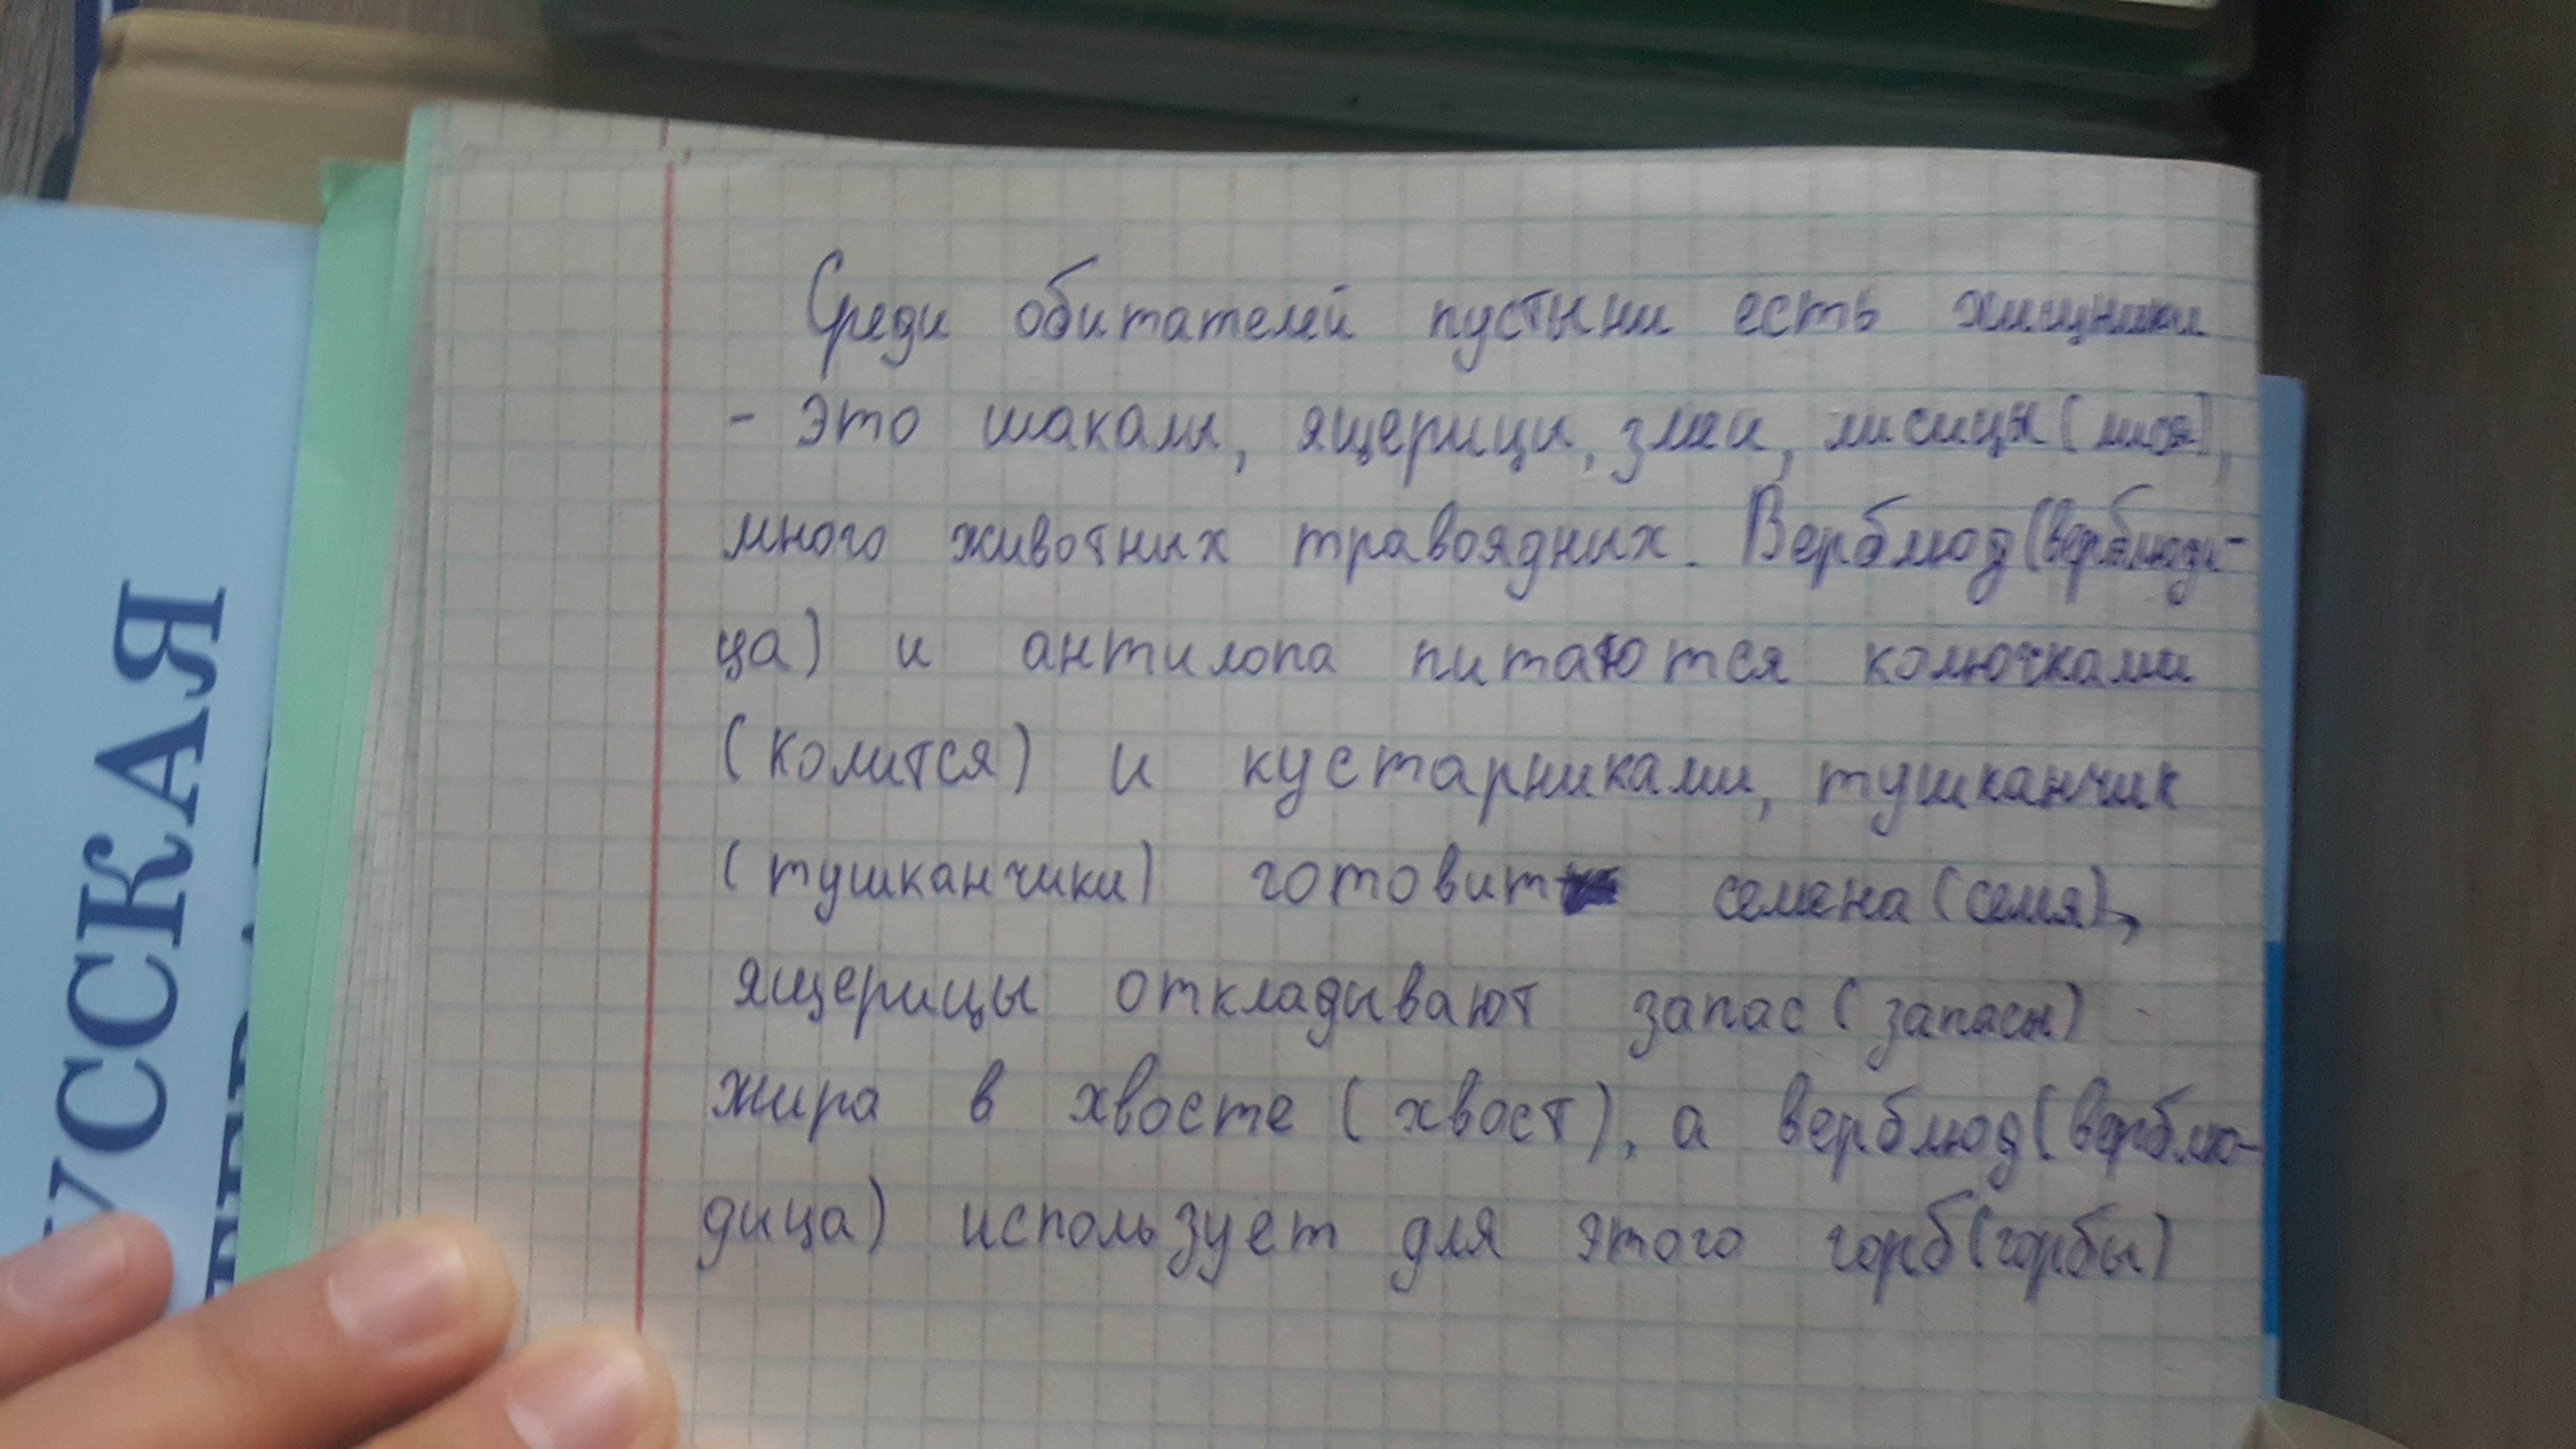 УССКАЯ
Среди обитателей пустыни есть хищники
- это шакалы, ящерицы, змеи, лисицы (лиса),
много животных травоядных. Верблюд (верблюди-
ца) и антилопа питаются колючками
(колится) и кустарниками, тушканчик
(тушканчики) готовит семена (семя),
ящерицы откладывают запас (запасы)
жира в хвосте (хвост), а верблюд (верблю-
дица) использует для этого горб (горбы)